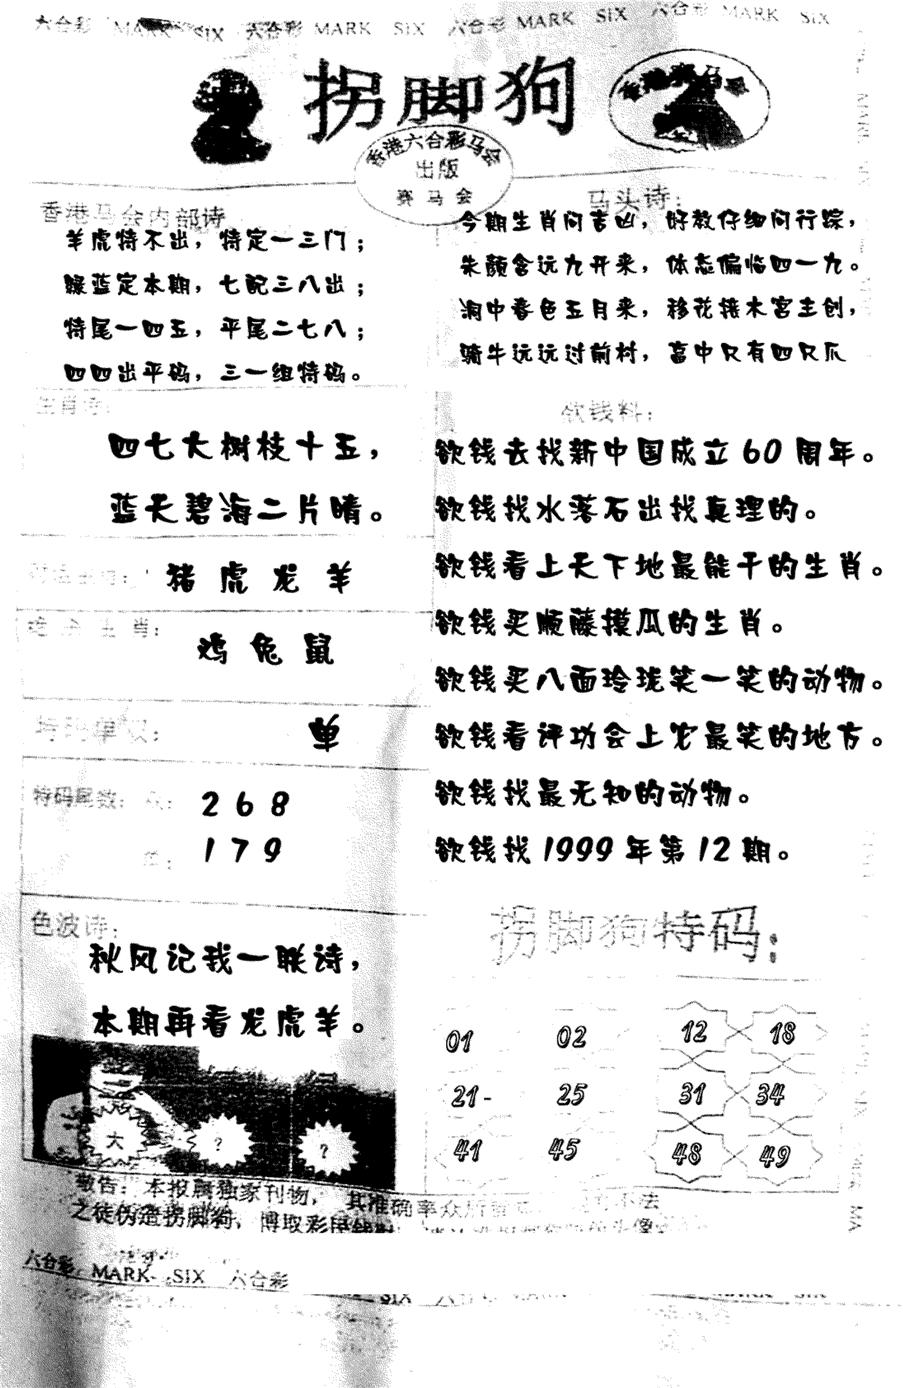 六合彩 MARK SIX 六合彩 MARK SIX 六合彩 MARK SIX 六合彩 MARK SIX
拐脚狗
香港赛马会
香港六合彩马会
出版
赛马会
香港马会内部诗
羊虎特不出，特定一三门；
绿蓝定本期，七配三八出；
特尾一四五，平尾二七八；
四四出平码，三一组特码。
马头诗：
今期生肖问吉凶，好教仔细问行踪，
朱颜含远九开来，体态偏临四一九。
洞中春色五月来，移花接木宫主创，
骑牛远远过前村，富中只有四只爪
生肖诗：
四七大树枝十五，
蓝天碧海二片晴。
猪虎龙羊
生肖：
鸡兔鼠
特码单双：
单
特码尾数：双：
268
单：
179
色波诗：
秋风记我一联诗，
本期再看龙虎羊。
大 ? ?
欲钱料：
欲钱去找新中国成立60周年。
欲钱找水落石出找真理的。
欲钱看上天下地最能干的生肖。
欲钱买顺藤摸瓜的生肖。
欲钱买八面玲珑笑一笑的动物。
欲钱看评功会上它最笑的地方。
欲钱找最无知的动物。
欲钱找1999年第12期。
拐脚狗特码：
01 02 12 18
21- 25 31 34
41 45 48 49
敬告：本报属独家刊物，其准确率众所 不法
之徒伪造拐脚狗，博取彩民 头像
六合彩 MARK SIX 六合彩